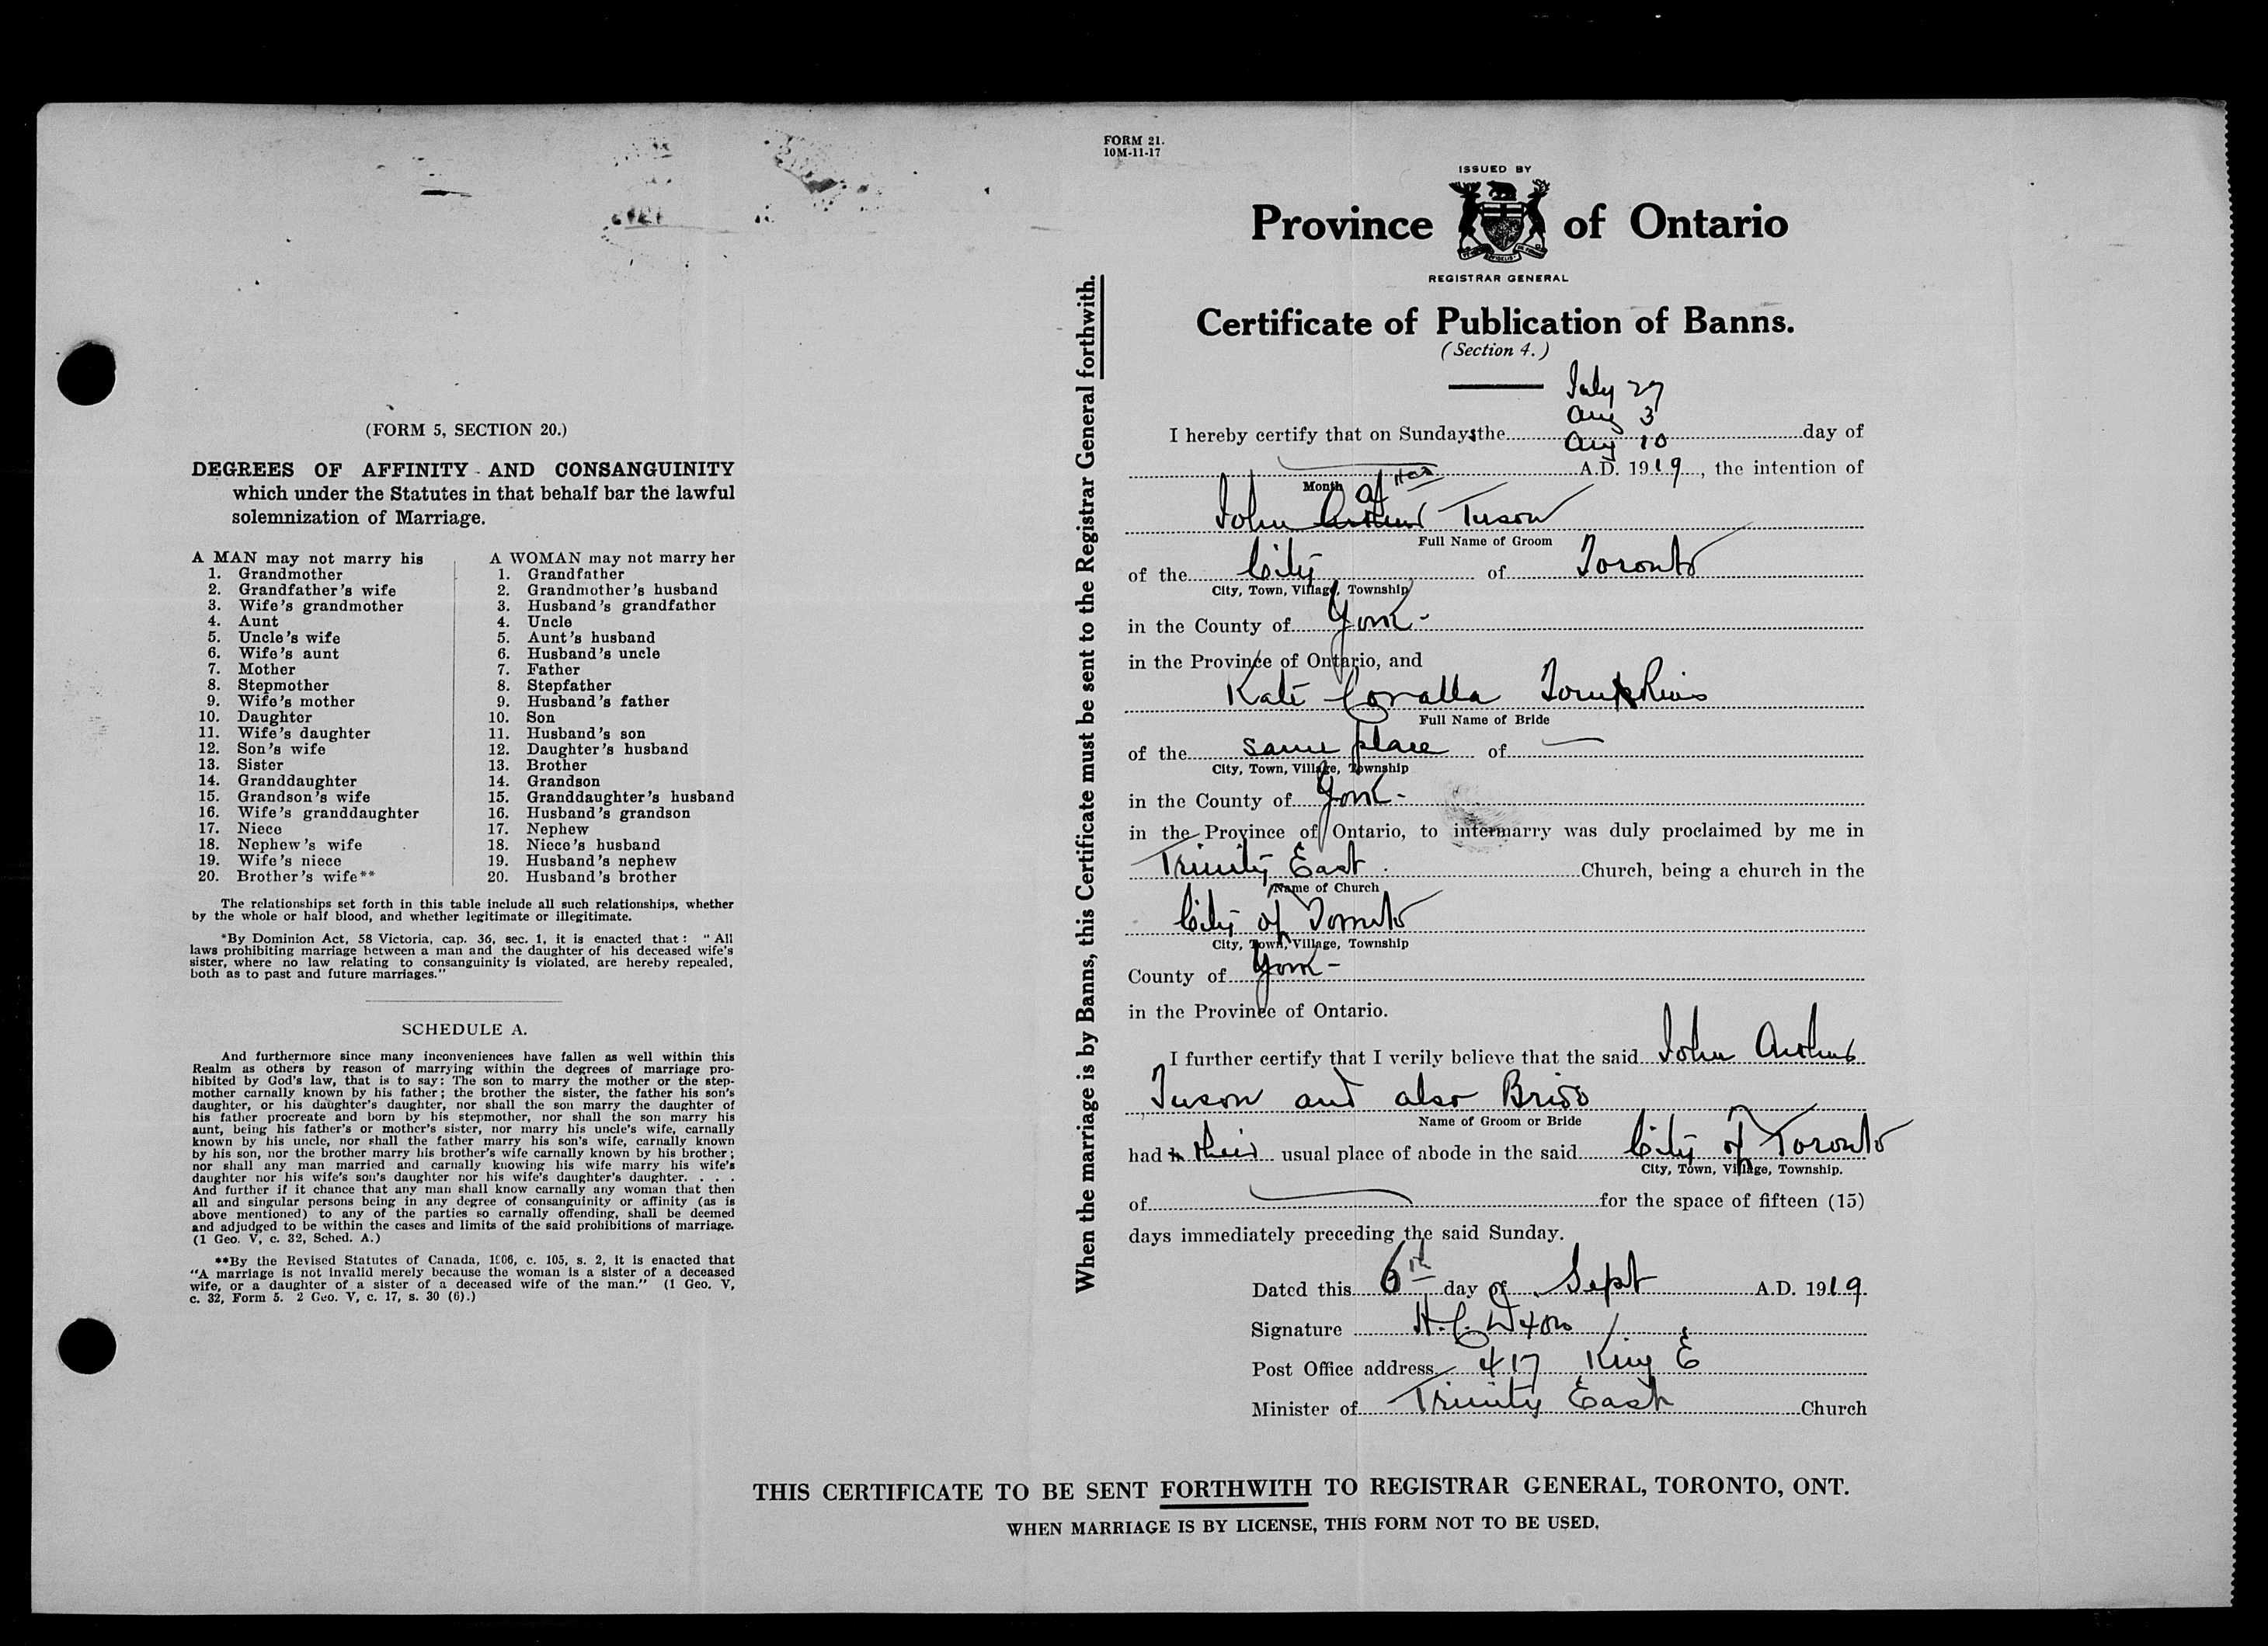 (FORM 5, SECTION 20.)
DEGREES OF AFFINITY AND CONSANGUINITY
which under the Statutes in that behalf bar the lawful
solemnization of Marriage.
A MAN may not marry his
1. Grandmother
2. Grandfather's wife
3. Wife's grandmother
4. Aunt
5. Uncle's wife
6. Wife's aunt
7. Mother
8. Stepmother
9. Wife's mother
10. Daughter
11. Wife's daughter
12. Son's wife
13. Sister
14. Granddaughter
15. Grandson's wife
16. Wife's granddaughter
17. Niece
18. Nephew's wife
19. Wife's niece
20. Brother's wife**
A WOMAN may not marry her
1. Grandfather
2. Grandmother's husband
3. Husband's grandfather
4. Uncle
5. Aunt's husband
6. Husband's uncle
7. Father
8. Stepfather
9. Husband's father
10. Son
11. Husband's son
12. Daughter's husband
13. Brother
14. Grandson
15. Granddaughter's husband
16. Husband's grandson
17. Nephew
18. Niece's husband
19. Husband's nephew
20. Husband's brother
The relationships set forth in this table include all such relationships, whether
by the whole or half blood, and whether legitimate or illegitimate.
*By Dominion Act, 58 Victoria, cap. 36, sec. 1, it is enacted that: "All
laws prohibiting marriage between a man and the daughter of his deceased wife's
sister, where no law relating to consanguinity is violated, are hereby repealed,
both as to past and future marriages."
SCHEDULE A.
And furthermore since many inconveniences have fallen as well within this
Realm as others by reason of marrying within the degrees of marriage pro-
hibited by God's law, that is to say: The son to marry the mother or the step-
mother carnally known by his father; the brother the sister, the father his son's
daughter, or his daughter's daughter, nor shall the son marry the daughter of
his father procreate and born by his stepmother, nor shall the son marry his
aunt, being his father's or mother's sister, nor marry his uncle's wife, carnally
known by his uncle, nor shall the father marry his son's wife, carnally known
by his son, nor the brother marry his brother's wife carnally known by his brother;
nor shall any man married and carnally knowing his wife marry his wife's
daughter nor his wife's son's daughter nor his wife's daughter's daughter. . . .
And further if it chance that any man shall know carnally any woman that then
all and singular persons being in any degree of consanguinity or affinity (as is
above mentioned) to any of the parties so carnally offending, shall be deemed
and adjudged to be within the cases and limits of the said prohibitions of marriage.
(1 Geo. V, c. 32, Sched. A.)
**By the Revised Statutes of Canada, 1906, c. 105, s. 2, it is enacted that
"A marriage is not invalid merely because the woman is a sister of a deceased
wife, or a daughter of a sister of a deceased wife of the man." (1 Geo. V,
c. 32, Form 5. 2 Geo. V, c. 17, s. 30 (6).)
When the marriage is by Banns, this Certificate must be sent to the Registrar General forthwith.
FORM 21.
10M-11-17
ISSUED BY
Province of Ontario
REGISTRAR GENERAL
Certificate of Publication of Banns.
(Section 4.)
July 27
Aug 3
I hereby certify that on Sundays the Aug 10 day of
A.D. 1919, the intention of
Month
John Arthur Tuson
Full Name of Groom
of the City of Toronto
City, Town, Village, Township
in the County of York -
in the Province of Ontario, and
Kate Coralla Tompkins
Full Name of Bride
of the same place of —
City, Town, Village, Township
in the County of York -
in the Province of Ontario, to intermarry was duly proclaimed by me in
Trinity East Church, being a church in the
Name of Church
City of Toronto
City, Town, Village, Township
County of York -
in the Province of Ontario.
I further certify that I verily believe that the said John Arthur
Tuson and also Bride
Name of Groom or Bride
had their usual place of abode in the said City of Toronto
City, Town, Village, Township.
of for the space of fifteen (15)
days immediately preceding the said Sunday.
Dated this 6th day of Sept A.D. 1919.
Signature H. C. Dixon
Post Office address 417 King E
Minister of Trinity East Church
THIS CERTIFICATE TO BE SENT FORTHWITH TO REGISTRAR GENERAL, TORONTO, ONT.
WHEN MARRIAGE IS BY LICENSE, THIS FORM NOT TO BE USED.